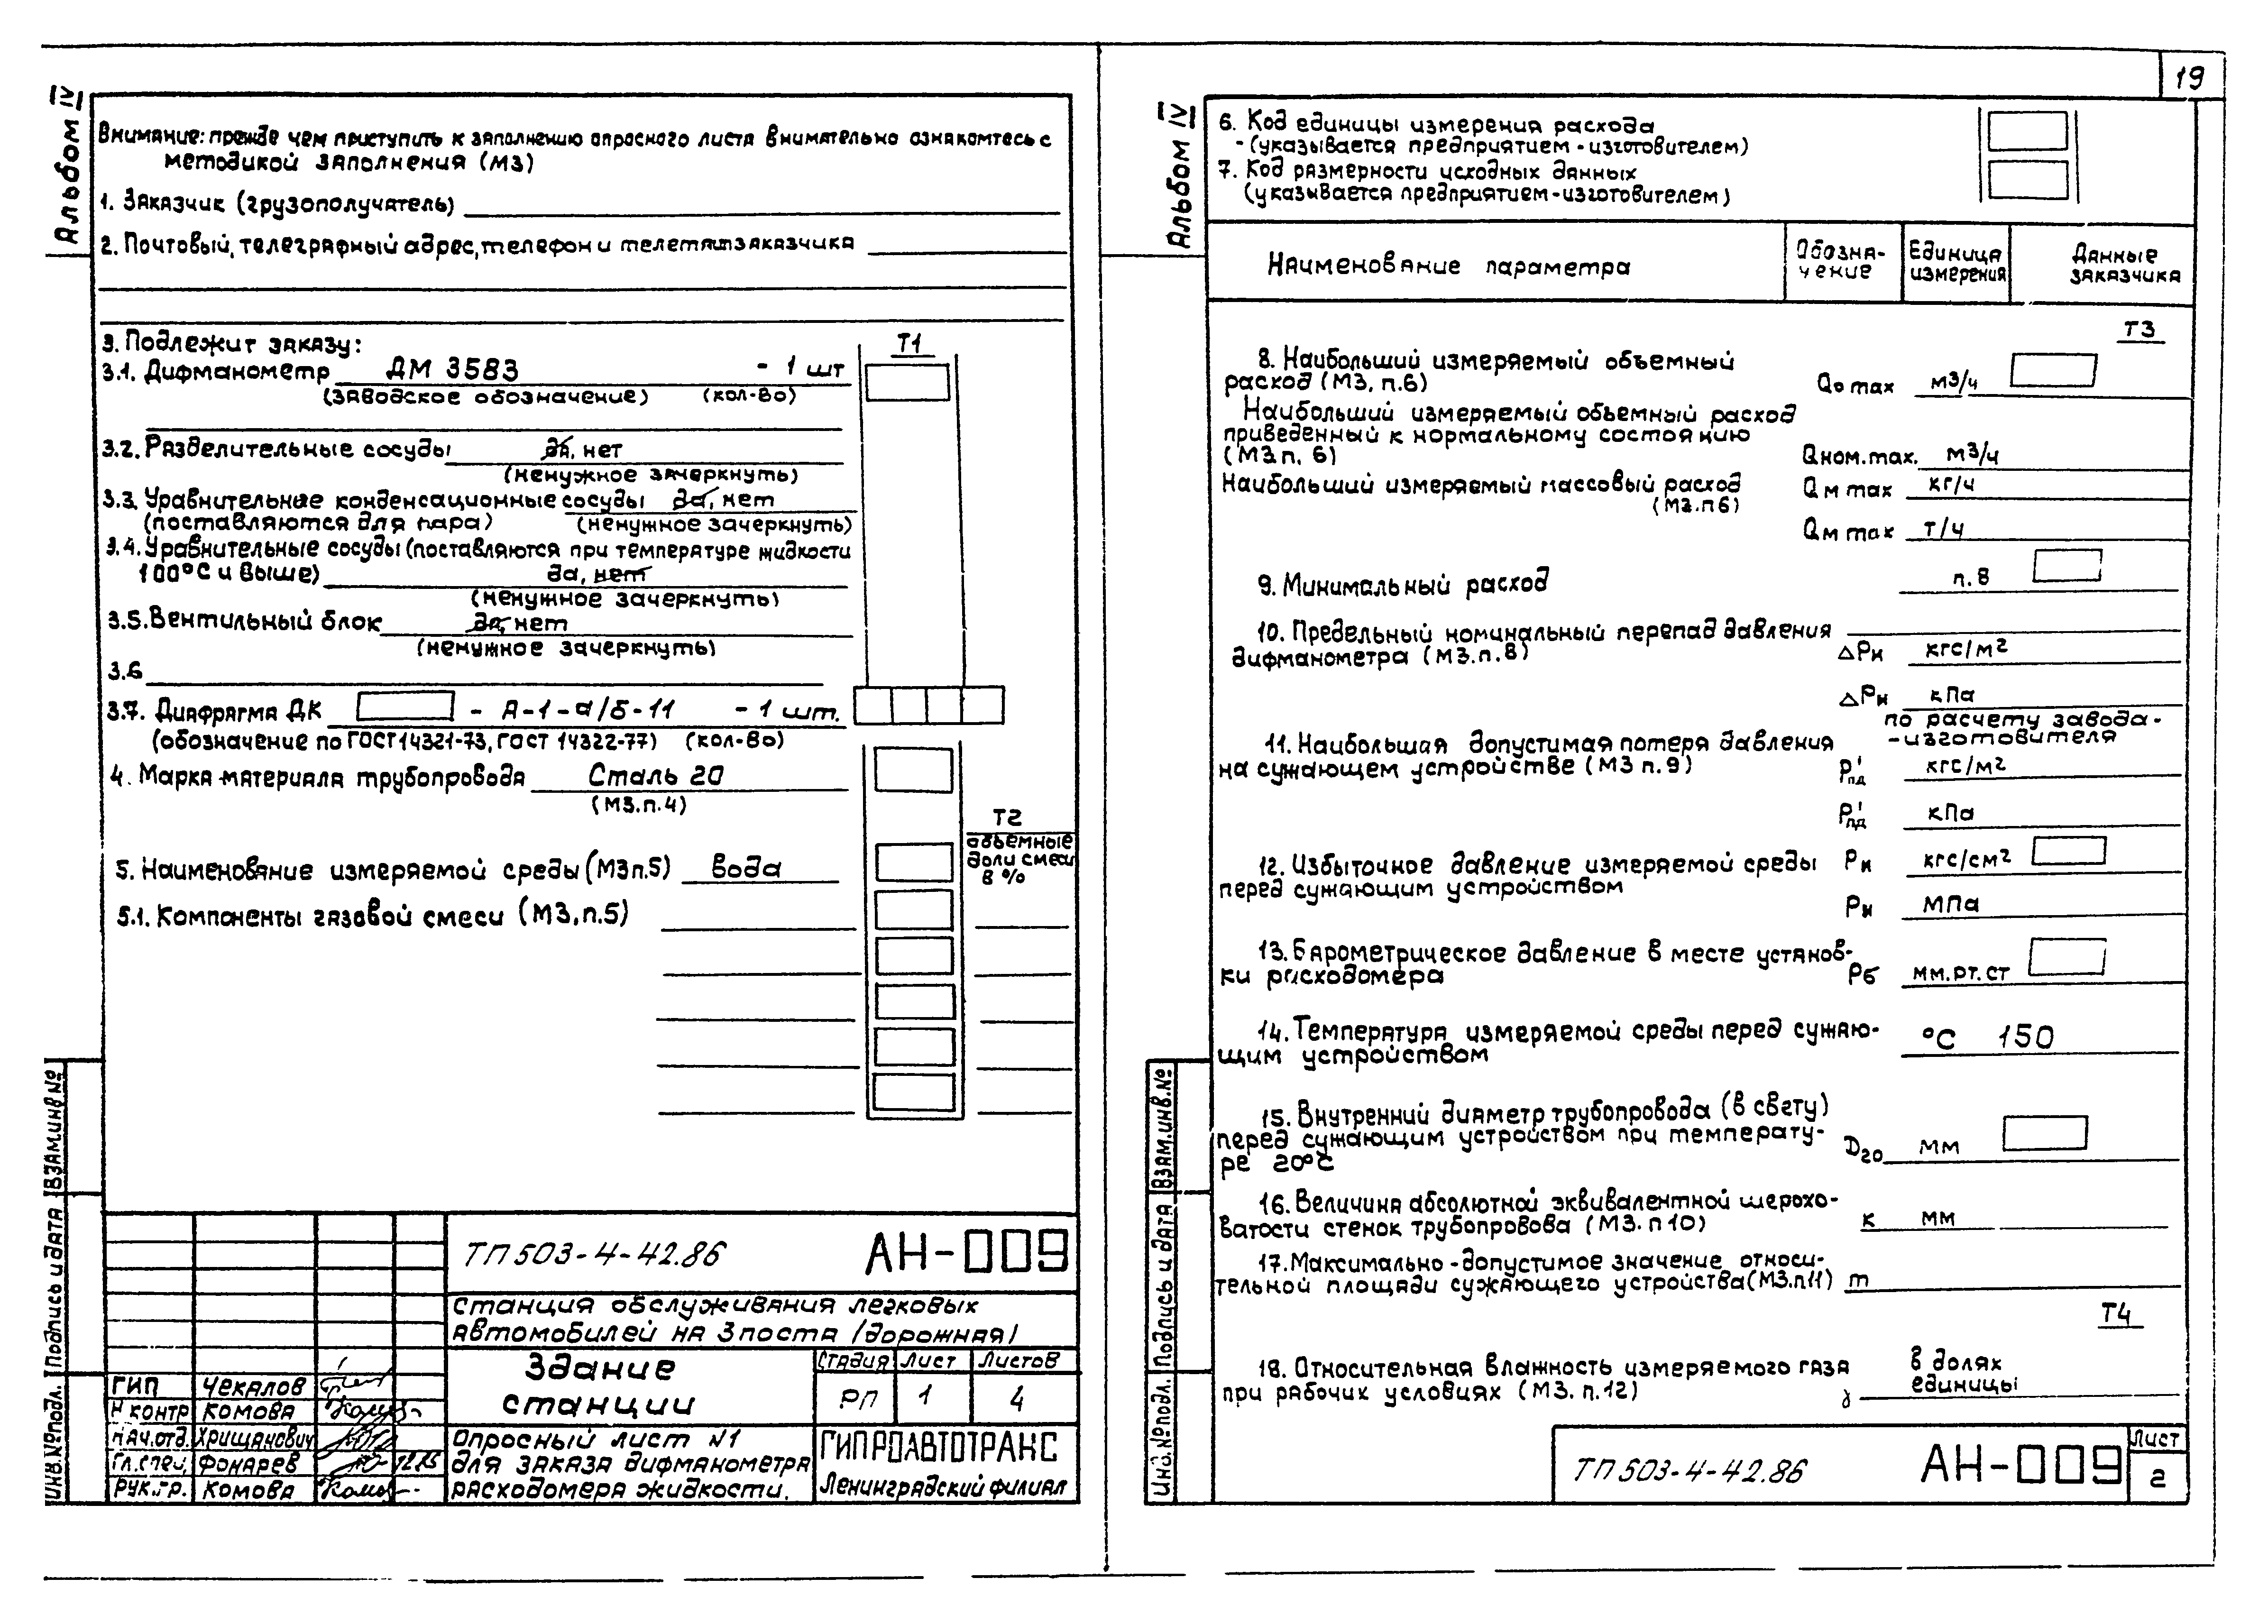 19
Альбом IV
Внимание: прежде чем приступить к заполнению опросного листа внимательно ознакомтесь с
методикой заполнения (МЗ)
1. Заказчик (грузополучатель)
2. Почтовый, телеграфный адрес, телефон и телетайп заказчика
3. Подлежит заказу:
Т1
3.1. Дифманометр ДМ 3583 - 1 шт
(заводское обозначение) (кол-во)
3.2. Разделительные сосуды да, нет
(ненужное зачеркнуть)
3.3. Уравнительные конденсационные сосуды да, нет
(поставляются для пара) (ненужное зачеркнуть)
3.4. Уравнительные сосуды (поставляются при температуре жидкости
100°С и выше) да, нет
(ненужное зачеркнуть)
3.5. Вентильный блок да, нет
(ненужное зачеркнуть)
3.6
3.7. Диафрагма ДК - А-1-а/б-11 - 1 шт.
(обозначение по ГОСТ 14321-73, ГОСТ 14322-77) (кол-во)
4. Марка материала трубопровода Сталь 20
(МЗ.п.4)
Т2
объемные
доли смеси
в %
5. Наименование измеряемой среды (МЗп.5) вода
5.1. Компоненты газовой смеси (МЗ.п.5)
ТП 503-4-42.86 АН-009
станция обслуживания легковых
автомобилей на 3 поста /дорожная/
Здание
станции
Стадия Лист Листов
РП 1 4
ГИП Чекалов
Н контр Комова
Нач.отд. Хрищанович
Гл.спец. Фонарев 12.85
Рук.гр. Комова
Опросный лист №1
для заказа дифманометра
расходомера жидкости.
ГИПРОАВТОТРАНС
Ленинградский филиал
Инв.№подл. Подпись и дата Взам.инв №
Альбом IV
6. Код единицы измерения расхода
- (указывается предприятием - изготовителем)
7. Код размерности исходных данных
(указывается предприятием-изготовителем)
Наименование параметра
Обозна-
чение
Единица
измерения
Данные
заказчика
Т3
8. Наибольший измеряемый объемный
расход (МЗ, п.6) Qо max м3/ч
Наибольший измеряемый объемный расход
приведенный к нормальному состоянию
(МЗ п. 6) Qном.max. м3/ч
Наибольший измеряемый массовый расход Qм max кг/ч
(МЗ.п6)
Qм max т/ч
9. Минимальный расход п.8
10. Предельный номинальный перепад давления
дифманометра (МЗ.п.8) ΔРн кгс/м2
ΔРн кПа
по расчету завода-
-изготовителя
11. Наибольшая допустимая потеря давления
на сужающем устройстве (МЗ п.9) Р'пд кгс/м2
Р'пд кПа
12. Избыточное давление измеряемой среды Ри кгс/см2
перед сужающим устройством
Ри МПа
13. Барометрическое давление в месте установ-
ки расходомера Рб мм.рт.ст
14. Температура измеряемой среды перед сужаю-
щим устройством °С 150
15. Внутренний диаметр трубопровода (в свету)
перед сужающим устройством при температу-
ре 20°С D20 мм
16. Величина абсолютной эквивалентной шерохо-
ватости стенок трубопровова (МЗ. п 10) к мм
17. Максимально - допустимое значение относи-
тельной площади сужающего устройства (МЗ.п11) m
Т4
18. Относительная влажность измеряемого газа
при рабочих условиях (МЗ. п.12)
в долях
единицы
ТП 503-4-42.86 АН-009
Лист
2
Инв.№подл. Подпись и дата Взам.инв.№